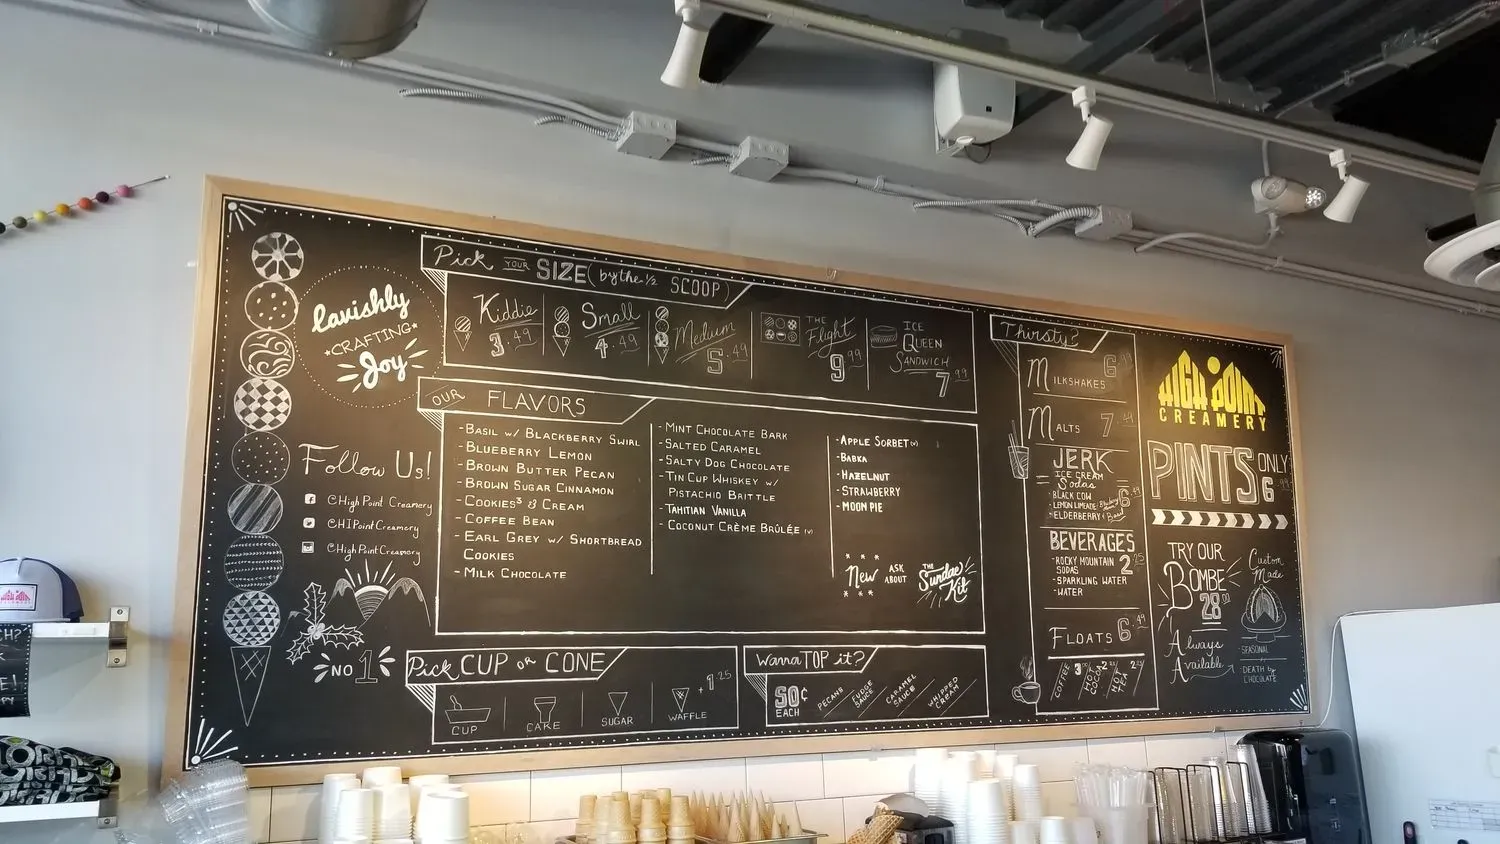 lavishly
CRAFTING
Joy
Follow Us!
@High Point Creamery
@HIPointCreamery
@HighPointCreamery
NO 1
Pick YOUR SIZE (by the ½ SCOOP)
Kiddie
3.49
Small
4.49
Medium
5.49
THE
Flight
9.99
ICE
QUEEN
SANDWICH
7.99
OUR FLAVORS
- BASIL W/ BLACKBERRY SWIRL
- BLUEBERRY LEMON
- BROWN BUTTER PECAN
- BROWN SUGAR CINNAMON
- COOKIES³ & CREAM
- COFFEE BEAN
- EARL GREY W/ SHORTBREAD
COOKIES
- MILK CHOCOLATE
- MINT CHOCOLATE BARK
- SALTED CARAMEL
- SALTY DOG CHOCOLATE
- TIN CUP WHISKEY W/
PISTACHIO BRITTLE
- TAHITIAN VANILLA
- COCONUT CRÈME BRÛLÉE (V)
- APPLE SORBET (V)
- BABKA
- HAZELNUT
- STRAWBERRY
- MOON PIE
New ASK ABOUT THE Sundae Kit
Pick CUP OR CONE
CUP
CAKE
SUGAR
WAFFLE
+1.25
Wanna TOP it?
50¢
EACH
PECANS
FUDGE SAUCE
CARAMEL SAUCE
WHIPPED CREAM
Thirsty?
MILKSHAKES 6.99
MALTS 7.49
JERK
ICE CREAM
Sodas
- BLACK COW
- LEMON LIMEADE
- ELDERBERRY
6.49
BEVERAGES
- ROCKY MOUNTAIN
SODAS
- SPARKLING WATER
- WATER
2.25
FLOATS 6.49
COFFEE
HOT COCOA
HOT TEA
HIGH POINT
CREAMERY
PINTS ONLY
6.99
TRY OUR
BOMBE
28.00
Custom
Made
Always
Available
- SEASONAL
- DEATH by
CHOCOLATE